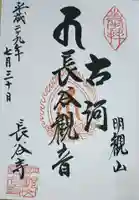 奉拝
古河
長谷觀音
明觀山
長谷寺
平成二十九年
七月三十日